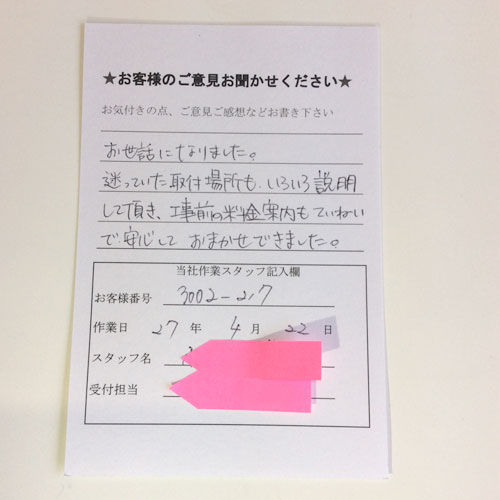 ★お客様のご意見お聞かせください★
お気付きの点、ご意見ご感想などお書き下さい
お世話になりました。
迷っていた取付場所も、いろいろ説明
して頂き、工事前の料金案内もていねい
で安心して おまかせできました。
当社作業スタッフ記入欄
お客様番号 3002-217
作業日 27 年 4 月 22 日
スタッフ名
受付担当